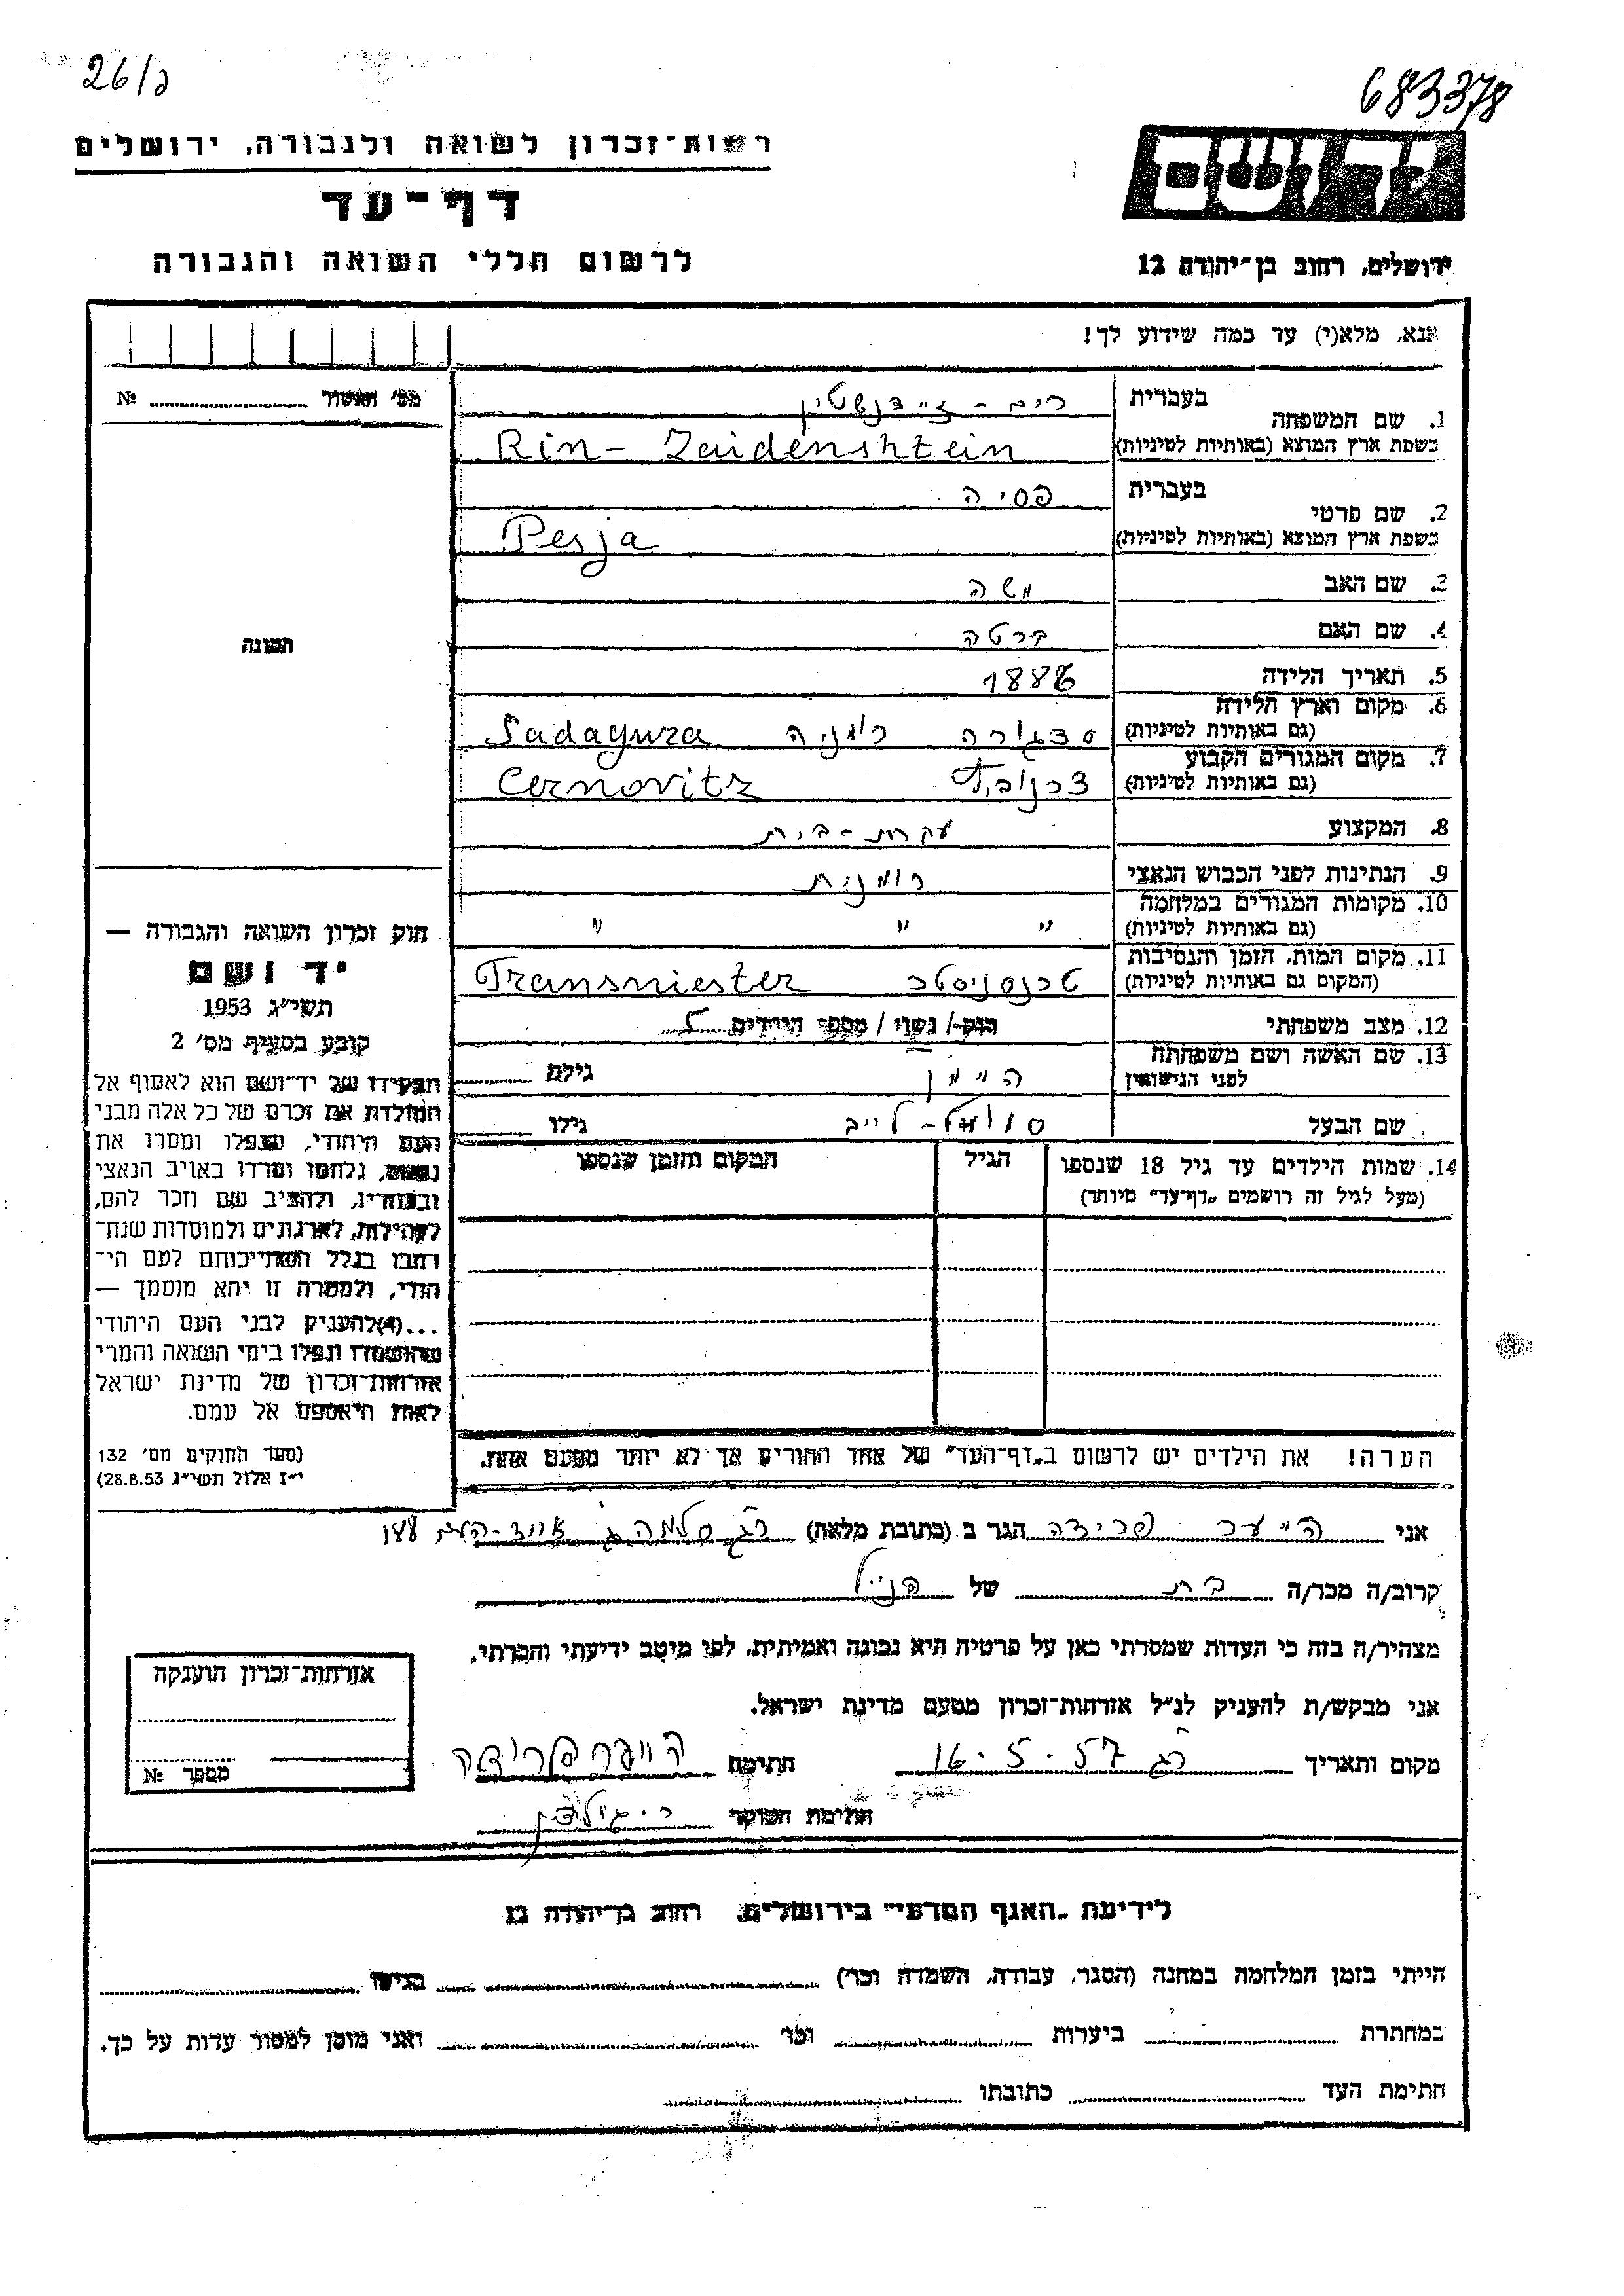 26/ג
683378
רשות־זכרון לשואה ולגבורה, ירושלים
דף־עד
לרשום חללי השואה והגבורה
יד ושם
ירושלים, רחוב בן־יהודה 12
אנא, מלא(י) עד כמה שידוע לך!
מס' האשור № 
1. שם המשפחה בעברית רין - זיידנשטיין
בשפת ארץ המוצא (באותיות לטיניות) Rin - Zaidenshtein
2. שם פרטי בעברית פסיה
בשפת ארץ המוצא (באותיות לטיניות) Pesja
3. שם האב משה
4. שם האם ברטה
5. תאריך הלידה 1886
6. מקום וארץ הלידה
(גם באותיות לטיניות) סדגורה רומניה Sadagura
7. מקום המגורים הקבוע
(גם באותיות לטיניות) צרנוביץ Cernovitz
8. המקצוע עקרת-בית
9. הנתינות לפני הכבוש הנאצי רומנית
10. מקומות המגורים במלחמה
(גם באותיות לטיניות) " " "
11. מקום המות, הזמן והנסיבות
(המקום גם באותיות לטיניות) טרנסניסטר Transniester
12. מצב משפחתי רוק/ נשוי / מספר הילדים
13. שם האשה ושם משפחתה
לפני הנישואין היימן גילה
שם הבעל סומל-לייב גילו
14. שמות הילדים עד גיל 18 שנספו הגיל המקום והזמן שנספו
(מעל לגיל זה רושמים „דף־עד" מיוחד)
הערה! את הילדים יש לרשום ב„דף־העד" של אחד ההורים אך לא יותר מפעם אחת.
תמונה
חוק זכרון השואה והגבורה —
יד ושם
תשי"ג 1953
קובע בסעיף מס' 2
תפקידו של יד־ושם הוא לאסוף אל
המולדת את זכרם של כל אלה מבני
העם היהודי, שנפלו ומסרו את
נפשם, נלחמו ומרדו באויב הנאצי
ובעוזריו, ולהציב שם וזכר להם,
לקהילות, לארגונים ולמוסדות שנח־
רבו בגלל השתייכותם לעם הי־
הודי, ולמטרה זו יהא מוסמך —
...(4)להעניק לבני העם היהודי
שהושמדו ונפלו בימי השואה והמרי
אזרחות־זכרון של מדינת ישראל
לאות היאספם אל עמם.
(ספר החוקים מס' 132
י"ז אלול תשי"ג 28.8.53)
אני פרידה הגר ב (כתובת מלאה)
קרוב/ה מכר/ה בת של הנ"ל
מצהיר/ה בזה כי העדות שמסרתי כאן על פרטיה היא נכונה ואמיתית, לפי מיטב ידיעתי והכרתי.
אני מבקש/ת להעניק לנ"ל אזרחות־זכרון מטעם מדינת ישראל.
מקום ותאריך רג 16.5.57 חתימת פרידה
חתימת הפוקד
אזרחות־זכרון הוענקה
מספר №
לידיעת „האגף המדעי" בירושלים, רחוב בן־יהודה 12
הייתי בזמן המלחמה במחנה (הסגר, עבודה, השמדה וכו') בגיטו
במחתרת ביערות וכו' ואני מוכן למסור עדות על כך.
חתימת העד כתובתו